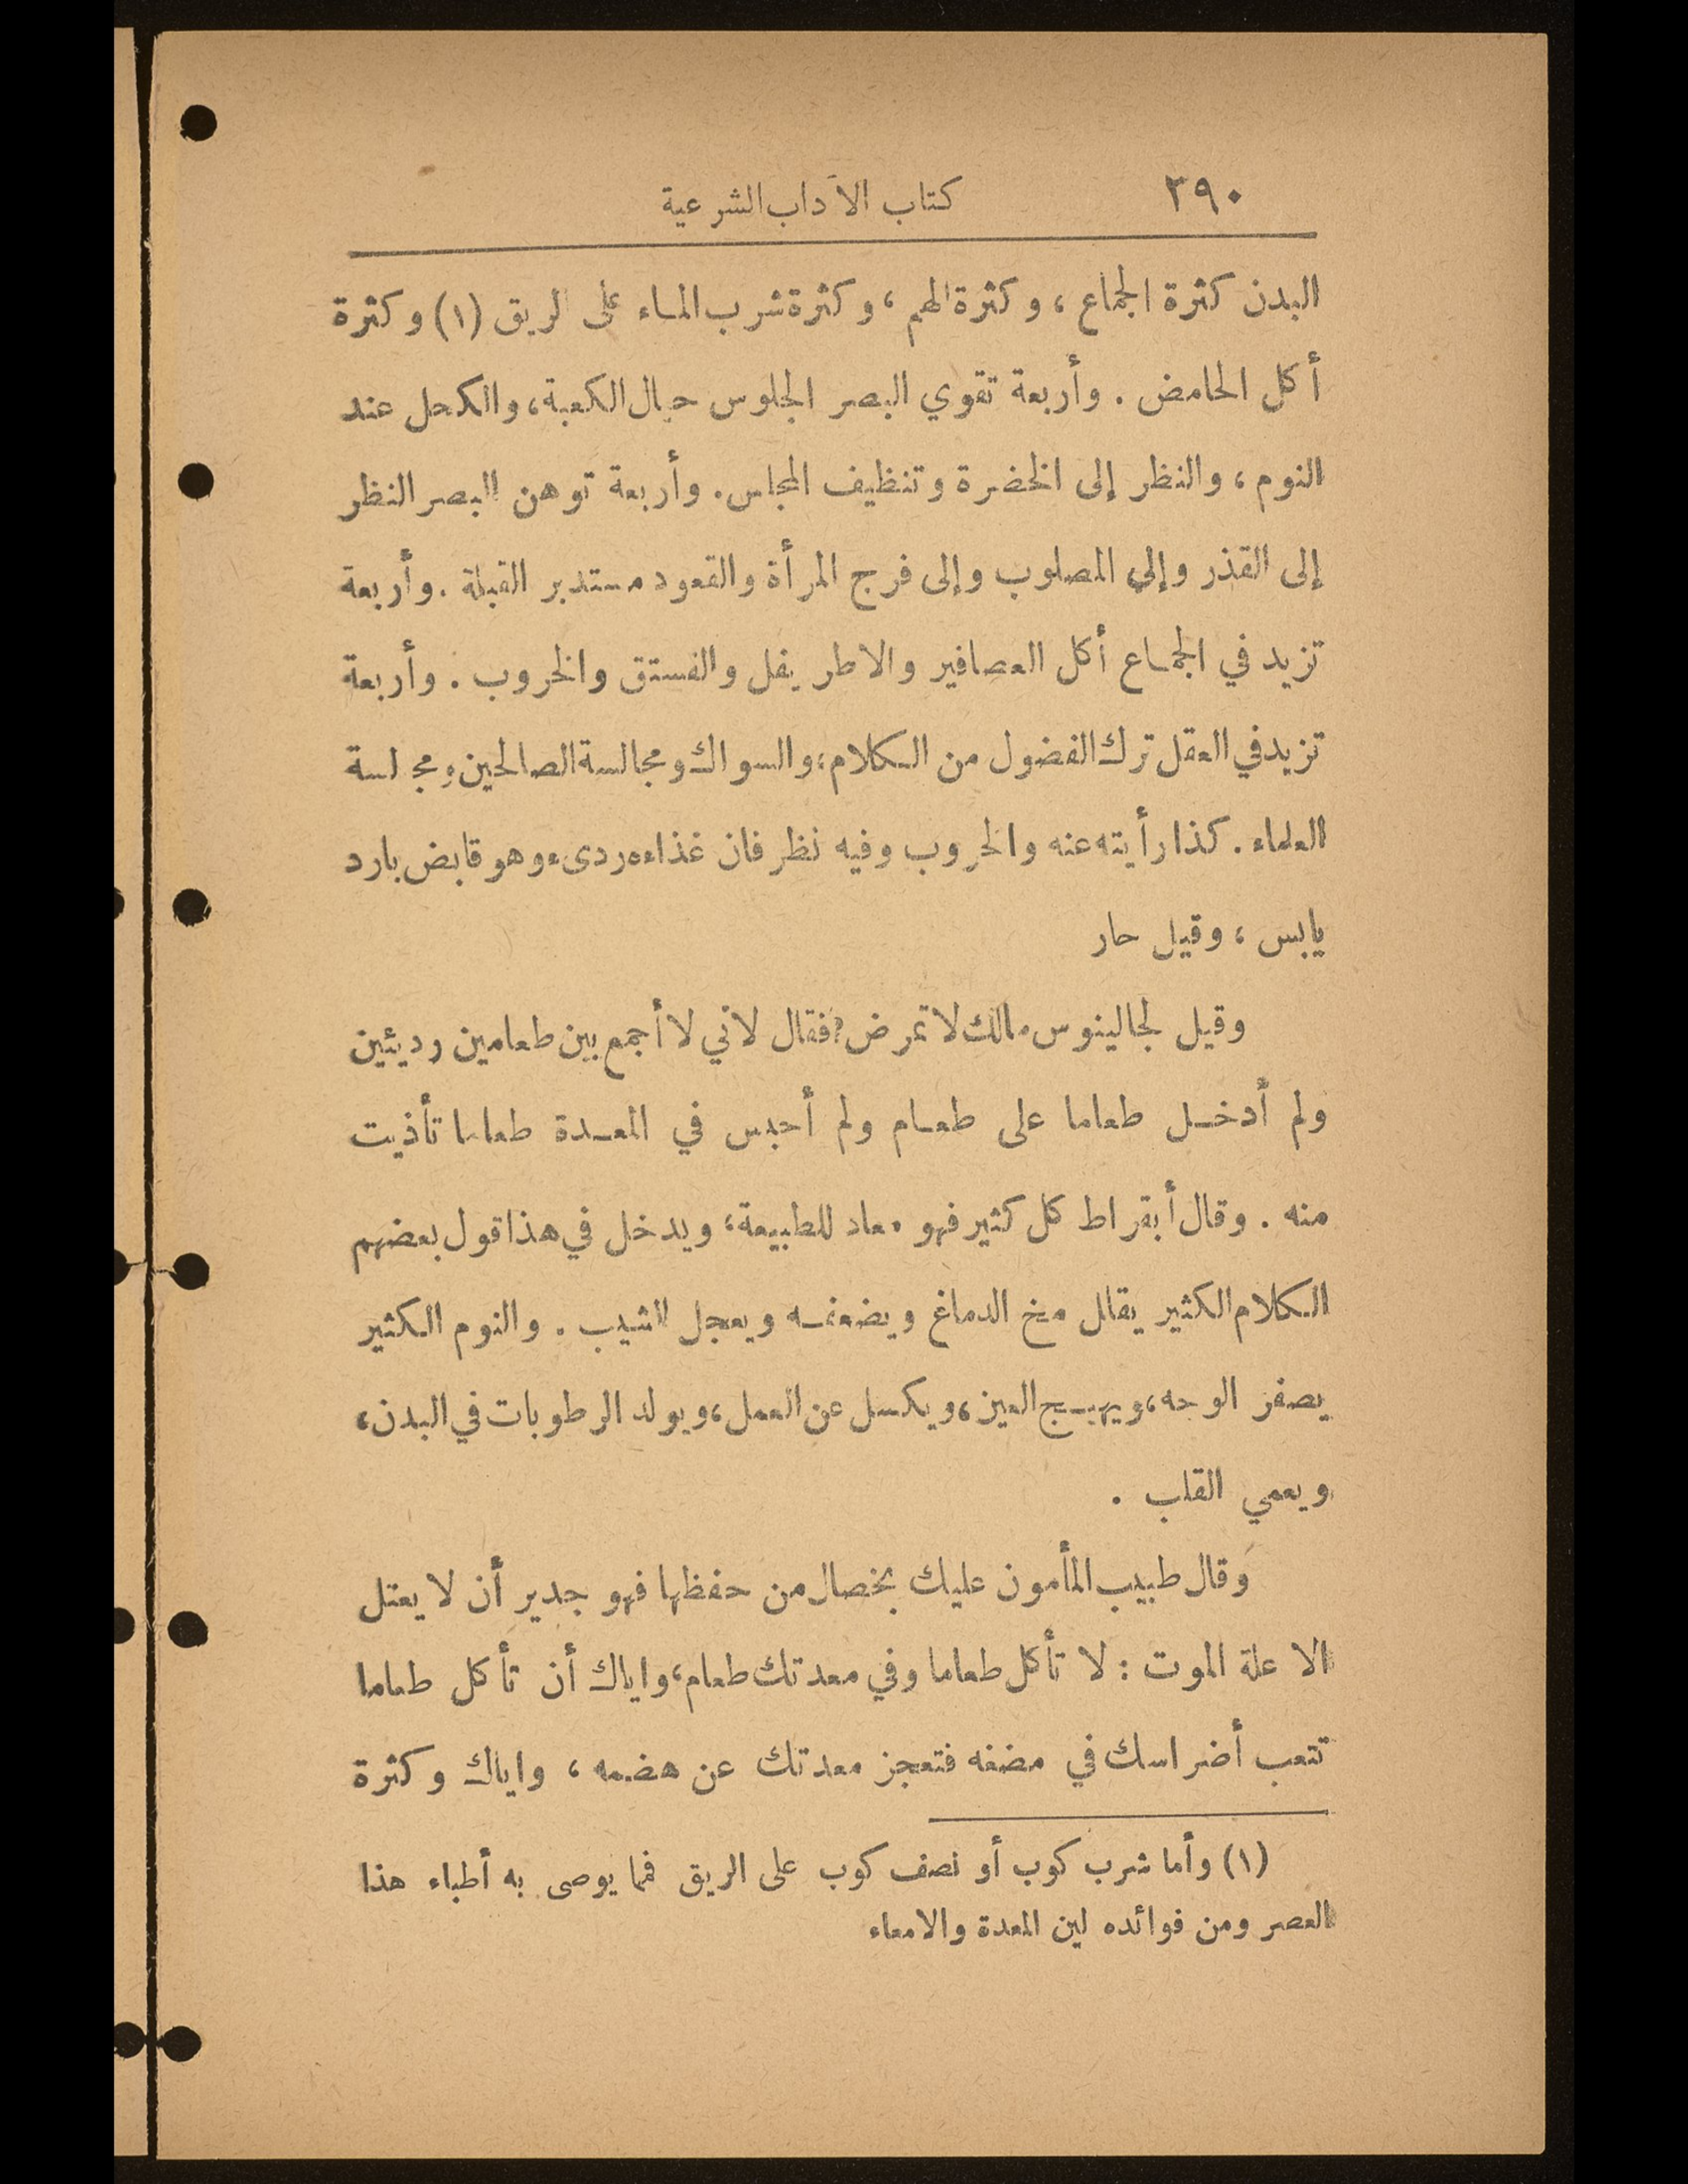 ٣٩٠ كتاب الآداب الشرعية
البدن كثرة الجماع ، وكثرة الهم ، وكثرة شرب الماء على الريق (١) وكثرة
أكل الحامض . وأربعة تقوي البصر الجلوس حيال الكعبة، والكحل عند
النوم ، والنظر إلى الخضرة وتنظيف المجلس. وأربعة توهن البصر النظر
إلى القذر وإلى المصلوب وإلى فرج المرأة والقعود مستدبر القبلة . وأربعة
تزيد في الجماع أكل العصافير والاطريفل والفستق والخروب . وأربعة
تزيد في العقل ترك الفضول من الكلام، والسواك ومجالسة الصالحين ومجالسة
العلماء . كذا رأيته عنه والخروب وفيه نظر فان غذاءه ردىء وهو قابض بارد
يابس ، وقيل حار
وقيل لجالينوس مالك لا تمرض؟ فقال لاني لا أجمع بين طعامين رديئين
ولم أدخل طعاما على طعام ولم أحبس في المعدة طعاما تأذيت
منه . وقال أبقراط كل كثير فهو معاد للطبيعة، ويدخل في هذا قول بعضهم
الكلام الكثير يقلل مخ الدماغ ويضعفه ويعجل الشيب . والنوم الكثير
يصفر الوجه، ويهيج العين، ويكسل عن العمل، ويولد الرطوبات في البدن،
ويعمي القلب .
وقال طبيب المأمون عليك بخصال من حفظها فهو جدير أن لا يعتل
الا علة الموت : لا تأكل طعاما وفي معدتك طعام، واياك أن تأكل طعاما
تتعب أضراسك في مضغه فتعجز معدتك عن هضمه ، واياك وكثرة
(١) وأما شرب كوب أو نصف كوب على الريق فما يوصى به أطباء هذا
العصر ومن فوائده لين المعدة والامعاء